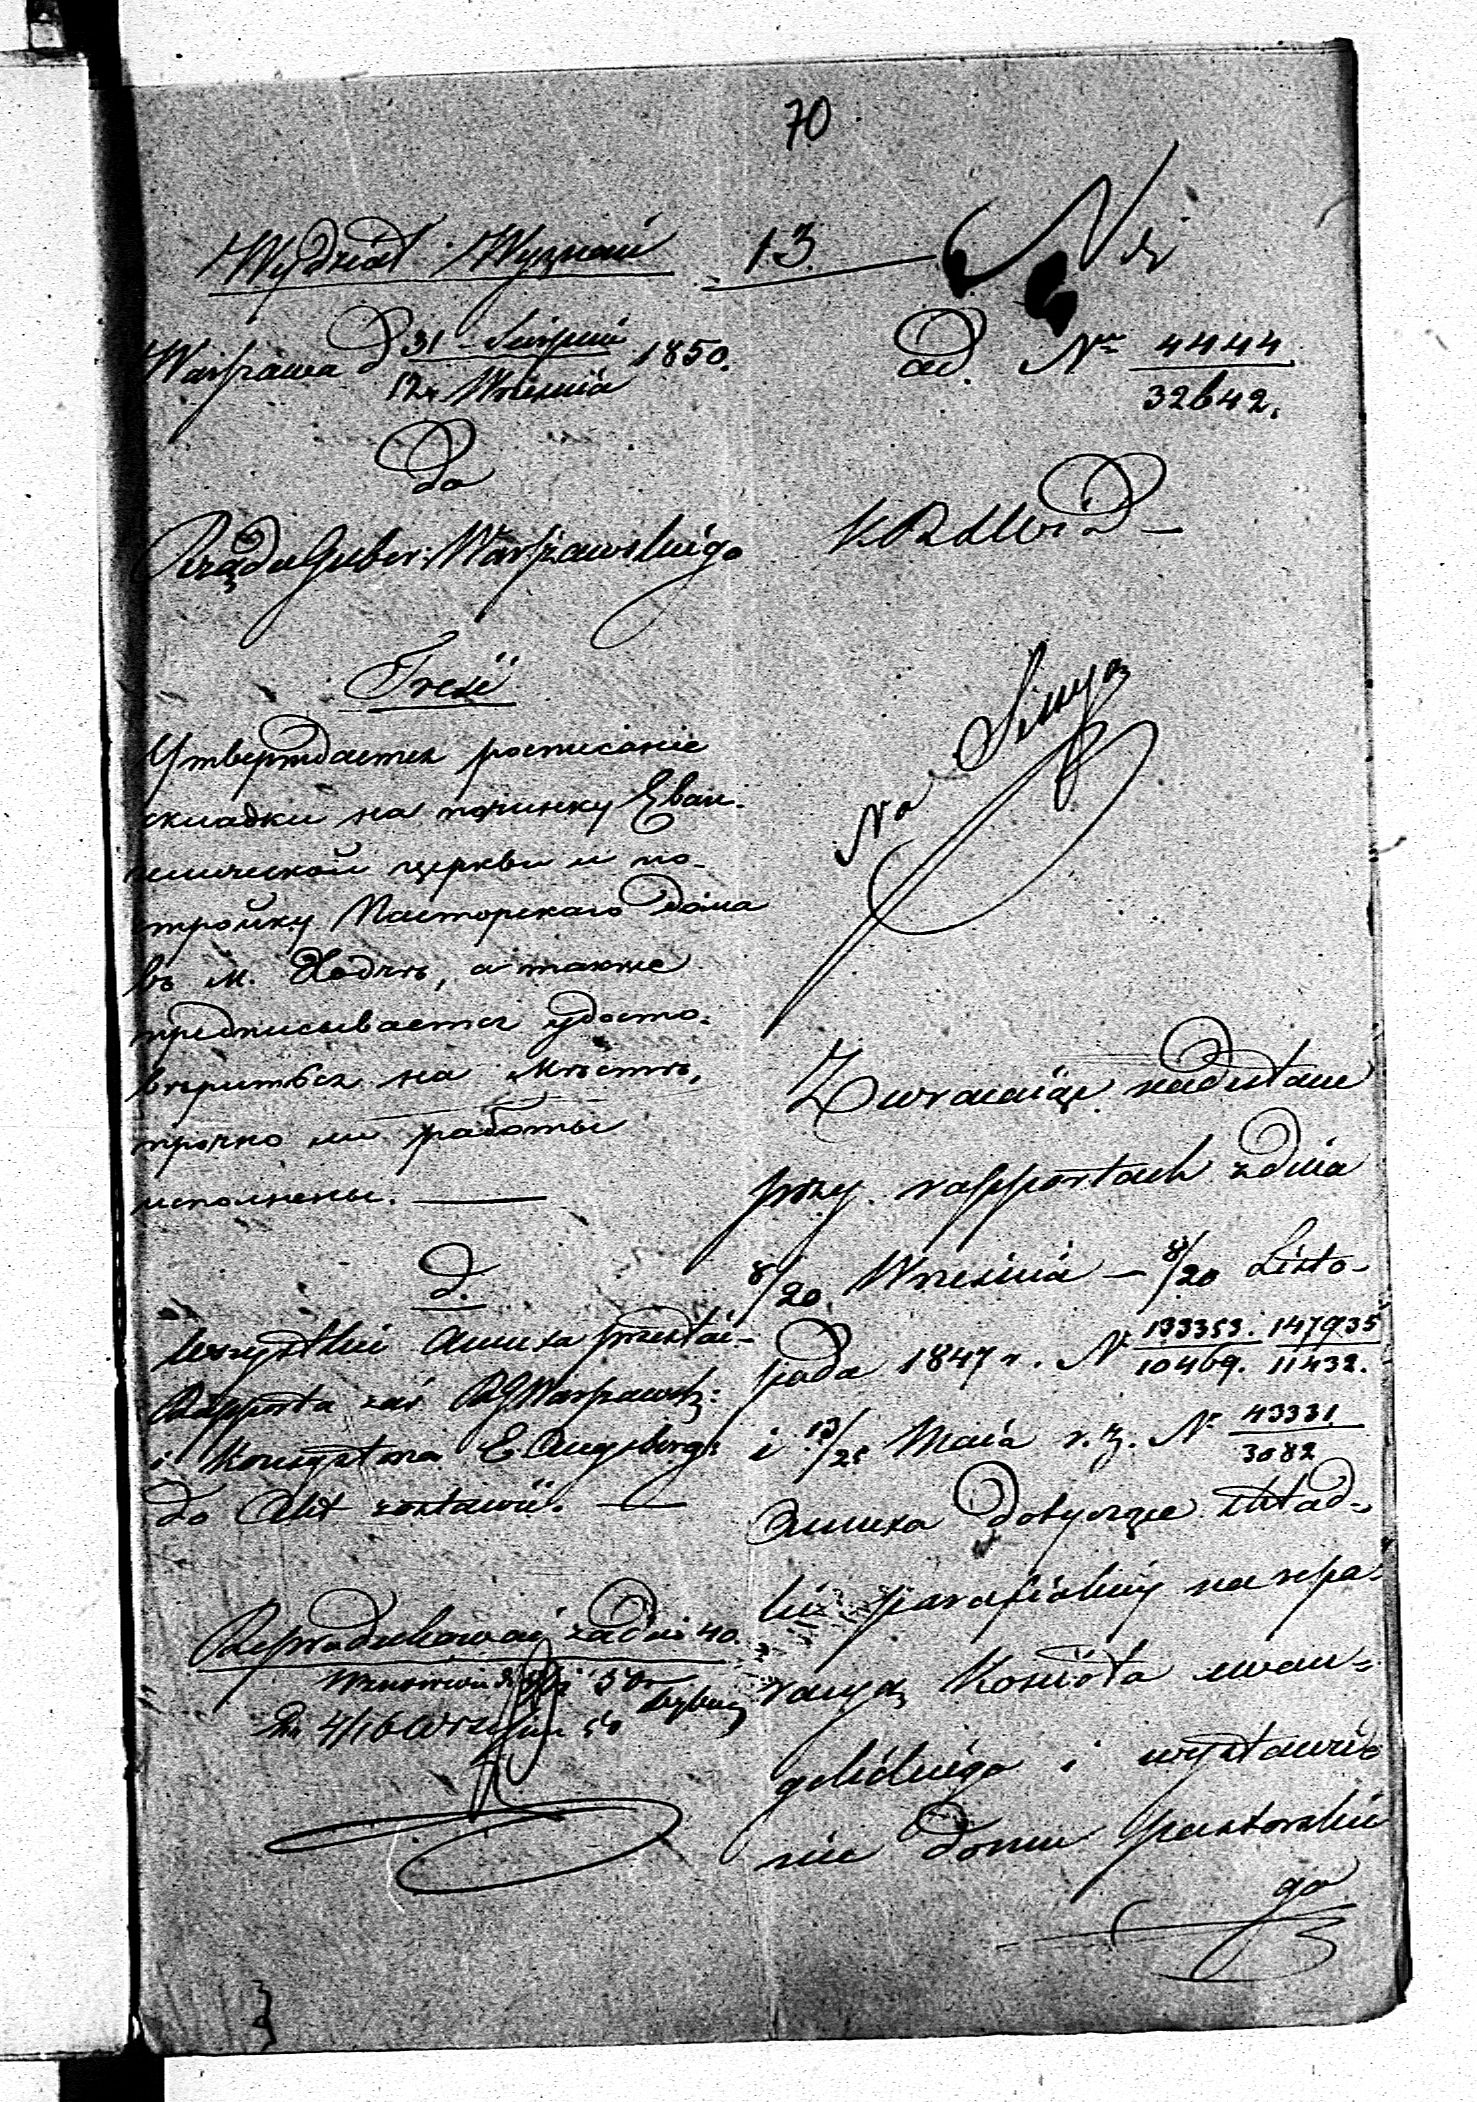 70
Wydział Wyznań 13
Nr
Warszawa d 31 Sierpnia 1850.
12 Września
ad. Nr 4444
32642.
Do
Rządu Guber: Warszawskiego
KRSWiD
Treść
Утверждается росписаніе
складки на починку Еван-
гелической церкви и по-
стройку Пасторскаго дома
въ м. Ходчѣ, а также
предписывается удосто-
вѣриться на мѣстѣ,
прочно ли работы
исполнены.
d.
Wszystkie Annexa przesłać
Rapporta zaś RGWarszawsk:
i Konsystorza E. Augsburg:
do Akt zostawić.
Reprodukować za dni 40.
4/16 Września 50
Na
Zwracając nadesłane
przy rapportach z dnia
8/20 Września – 8/20 Listo-
pada 1847 r. N 133353. 147935
10469. 11432.
i 13/25 Maja r. z. Nr 43331
3082
Annexa dotyczące skład-
ki parafialnej na repa-
racyą Kościoła ewan-
gelickiego i wystawie-
nie domu pastorskie
go